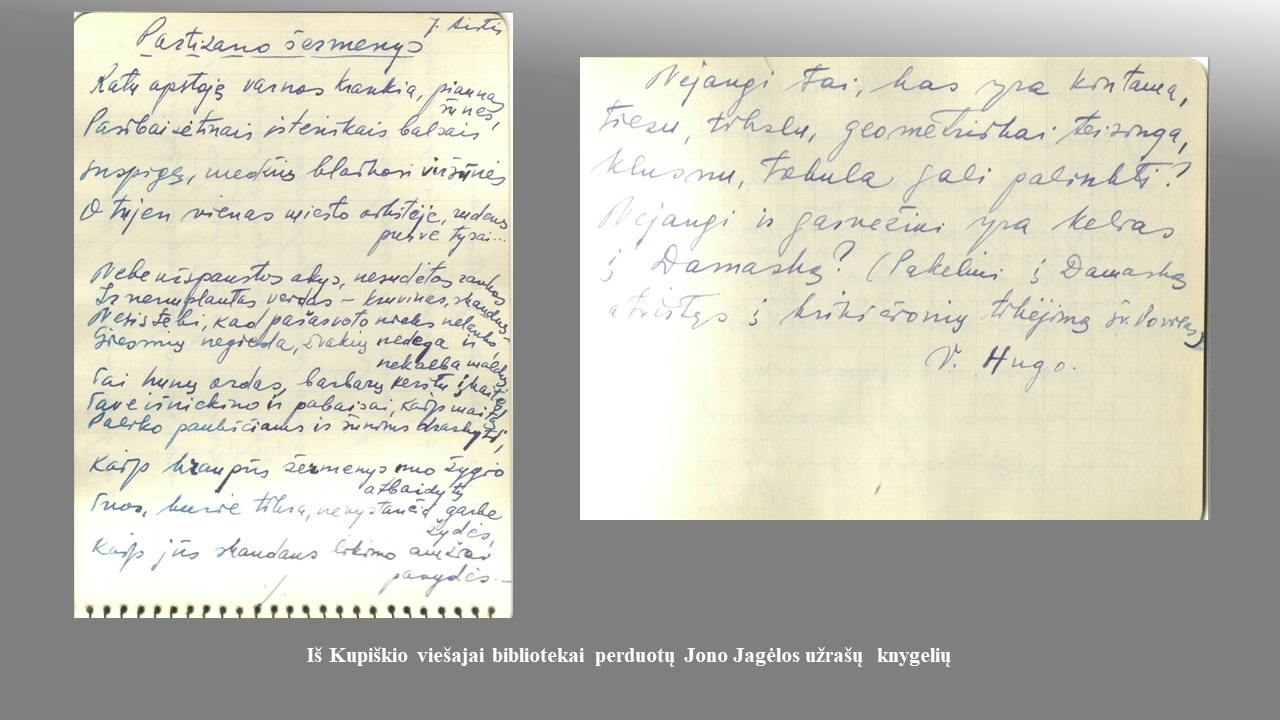 J. Aistis
Partizano šermenys
Katu apstoję varnos krankia, piaunas
šunes,
Pasibaisėtinais isteriškais balsais
suspigę, medžių blaškosi viršūnės
O tujen vienas miesto aikštėje,
pur've tysai...
Nebeužspaustos akys, nesudėtos rankos
Ir nenuplautas veidas – kruvinas, skaudus,
Nesistebi, kad pašarvoto nieks nelanko –
Giesmių negieda, žvakių nedega ir
nekalba maldų
Tai hunų ordas, barbarų kerštu įkaitę
Tave išniekino ir pabaisai, kaip maitą
Paliko paukščiams ir šunims draskyti,
Kaip kraupūs šermenys nuo žygio
atbaidytų
Tuos, kurie tiksą, nevystančia garbe
žydės,
Kaip jūs skandaus likimo amžiai
pavydės –
Nejaugi tai, kas yra kintama,
tiesu, tikslu, geometriškai teisinga,
klusnu, tobula gali palinkti?
Nejaugi ir garvežini yra kelias
į Damaską? (Pakeliui į Damaską
atvirtęs į krikščionių tikėjimą šv. Povilas)
V. Hugo.
Iš Kupiškio viešajai bibliotekai perduotų Jono Jagėlos užrašų knygelių